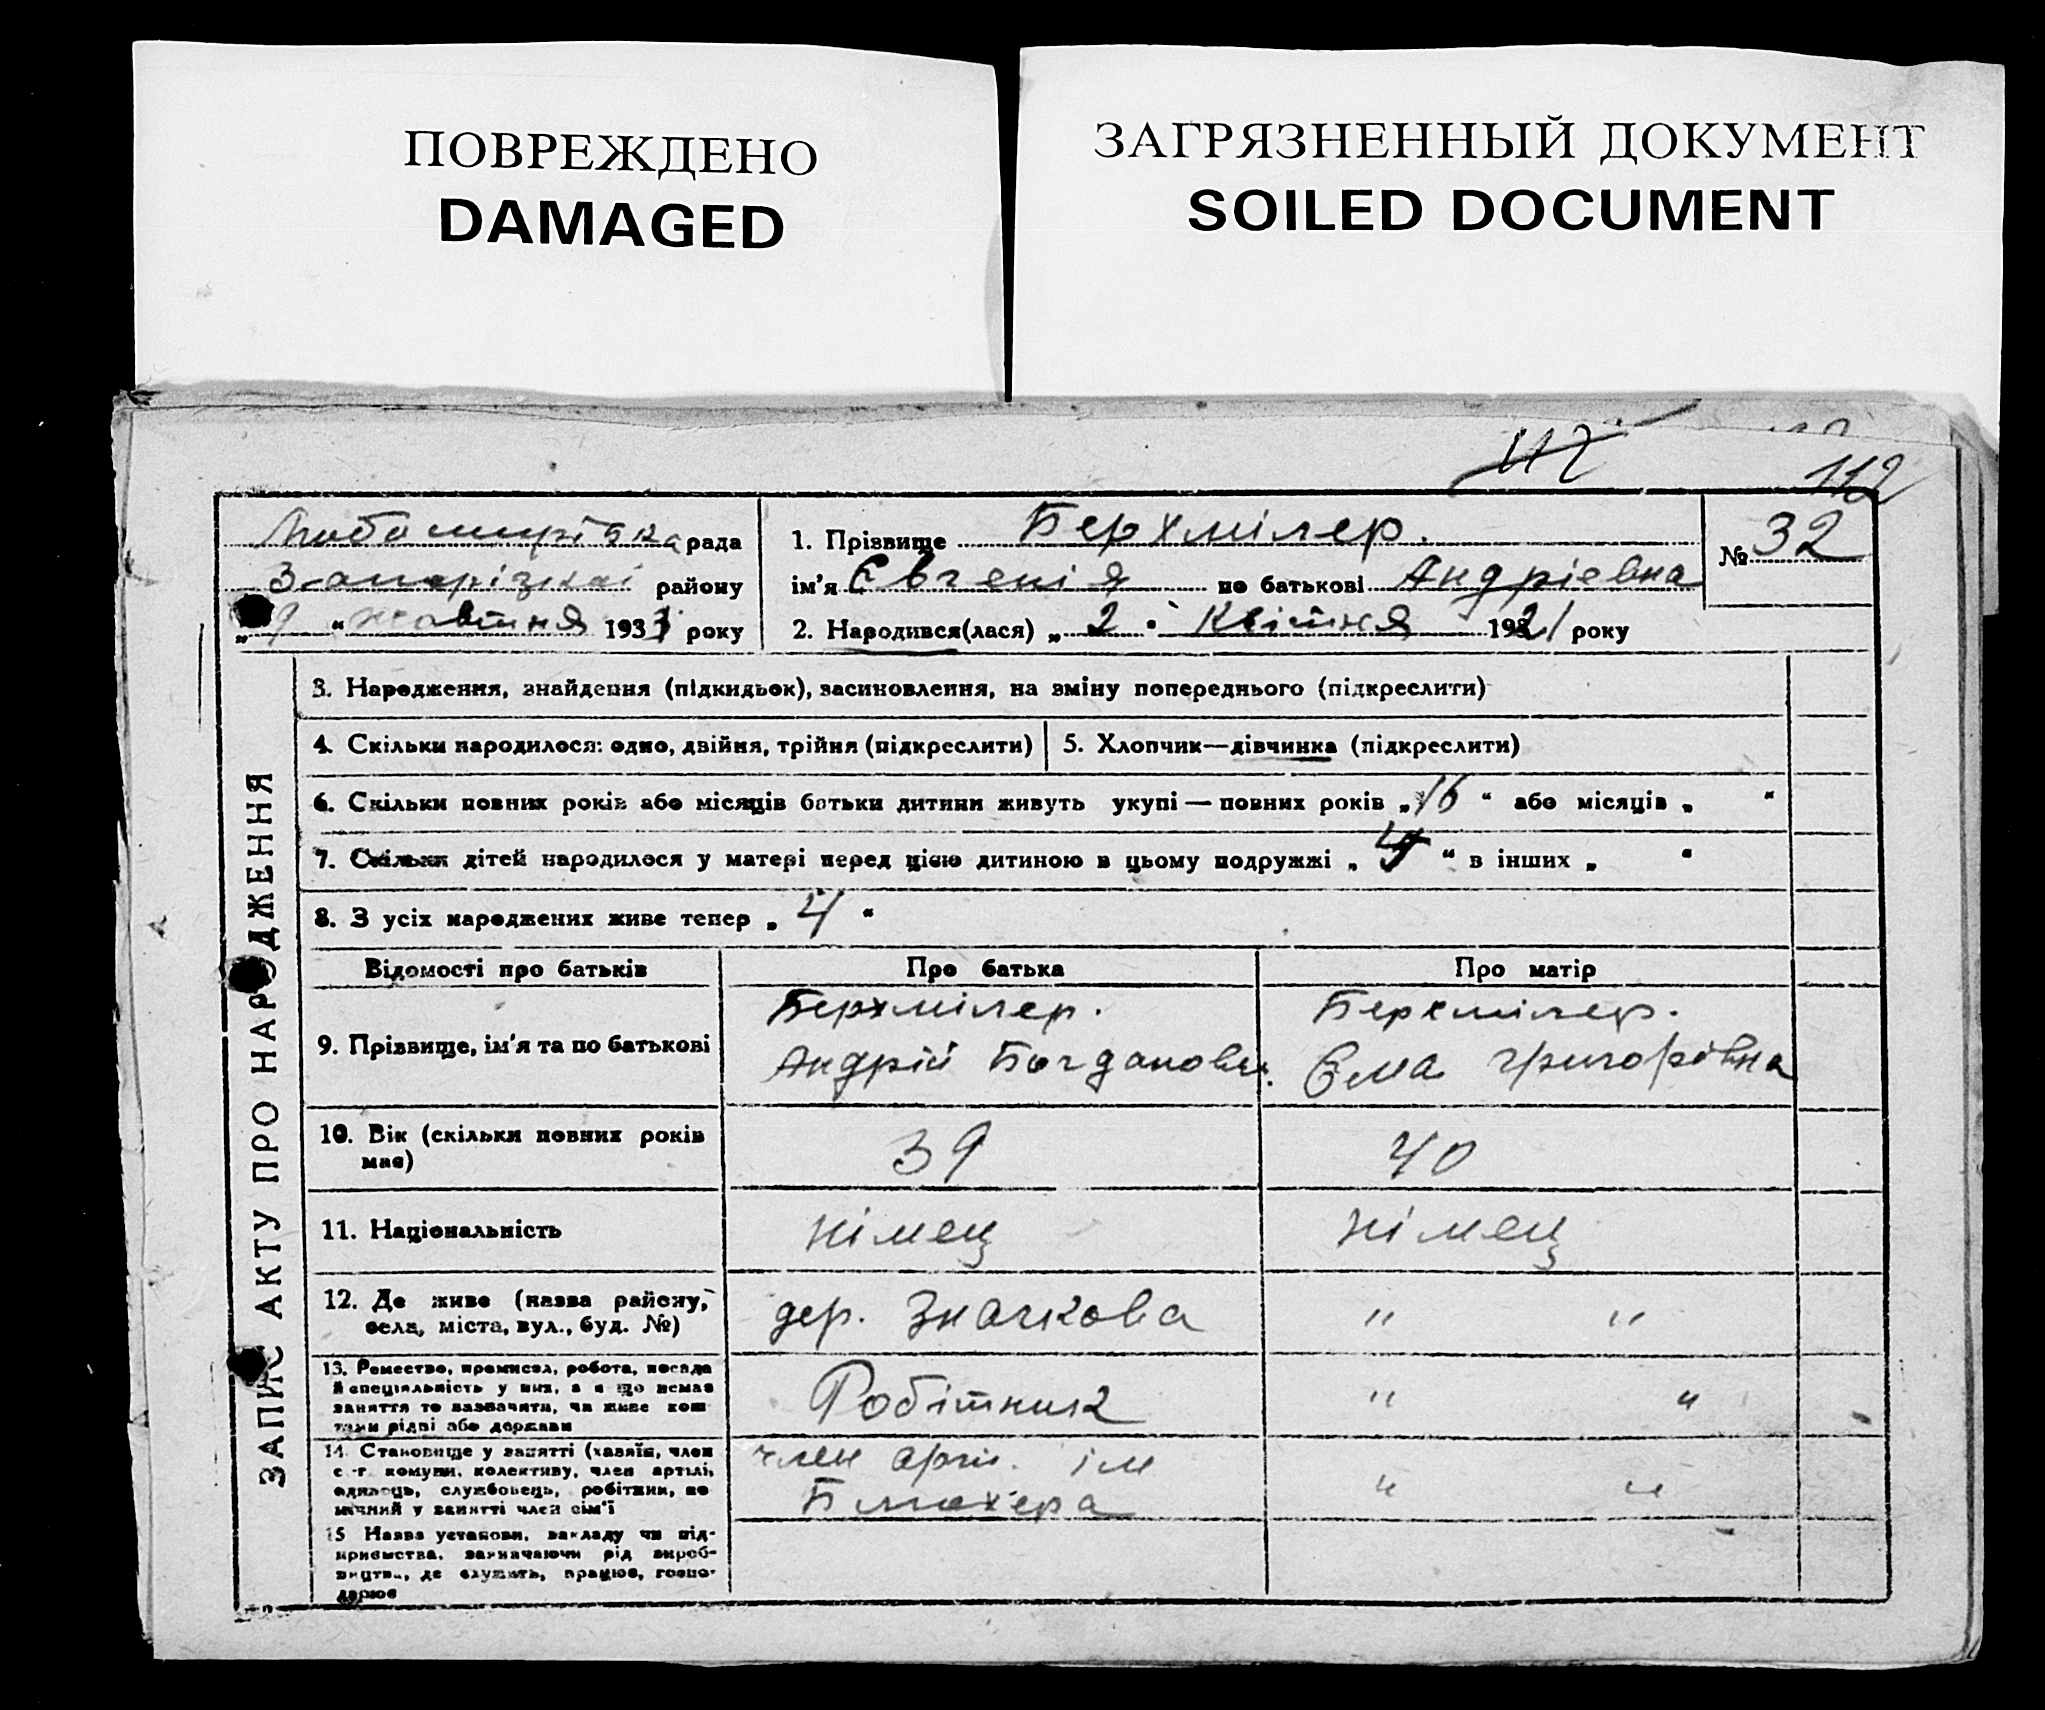 ПОВРЕЖДЕНО
DAMAGED
ЗАГРЯЗНЕННЫЙ ДОКУМЕНТ
SOILED DOCUMENT
117
112
Любомирівка рада
Запорізькаі району
„ 9 “ жовтня 1931 року
1. Прізвище Берхмілер.
ім'я Євгенія по батькові Андріевна
2. Народився(лася) „ 2 “ Квітня 1921 року
№ 32
ЗАПИС АКТУ ПРО НАРОДЖЕННЯ
3. Народження, знайдення (підкидьок), засиновлення, на зміну попереднього (підкреслити)
4. Скільки народилося: одно, двійня, трійня (підкреслити)
5. Хлопчик—дівчинка (підкреслити)
6. Скільки повних років або місяців батьки дитини живуть укупі — повних років „ 16 “ або місяців „ “
7. Скільки дітей народилося у матері перед цією дитиною в цьому подружжі „ 4 “ в інших „ “
8. З усіх народжених живе тепер „ 4 “
Відомості про батьків
Про батька
Про матір
9. Прізвище, ім'я та по батькові
Берхмілер.
Андрій Богданович.
Берхмілер.
Єма Григорівна
10. Вік (скільки повних років
має)
39
40
11. Національність
німец
німец
12. Де живе (назва району,
села, міста, вул., буд. №)
дер. Значкова
" "
13. Ремество, промисел, робота, посада
й спеціяльність у них, а я що немає
заняття то зазначити, чи живе кош
тами рідні або держави
Робітник
" "
14. Становище у занятті (хазяїн, член
с.-г. комуни, колективу, член артілі,
одинець, службовець, робітник, по
мічний у занятті член сім'ї
член арт. ім
" "
15 Назва установи, закладу чи під-
приємства, зазначаючи рід вироб-
ництва, де служить, працює, госпо-
дарює